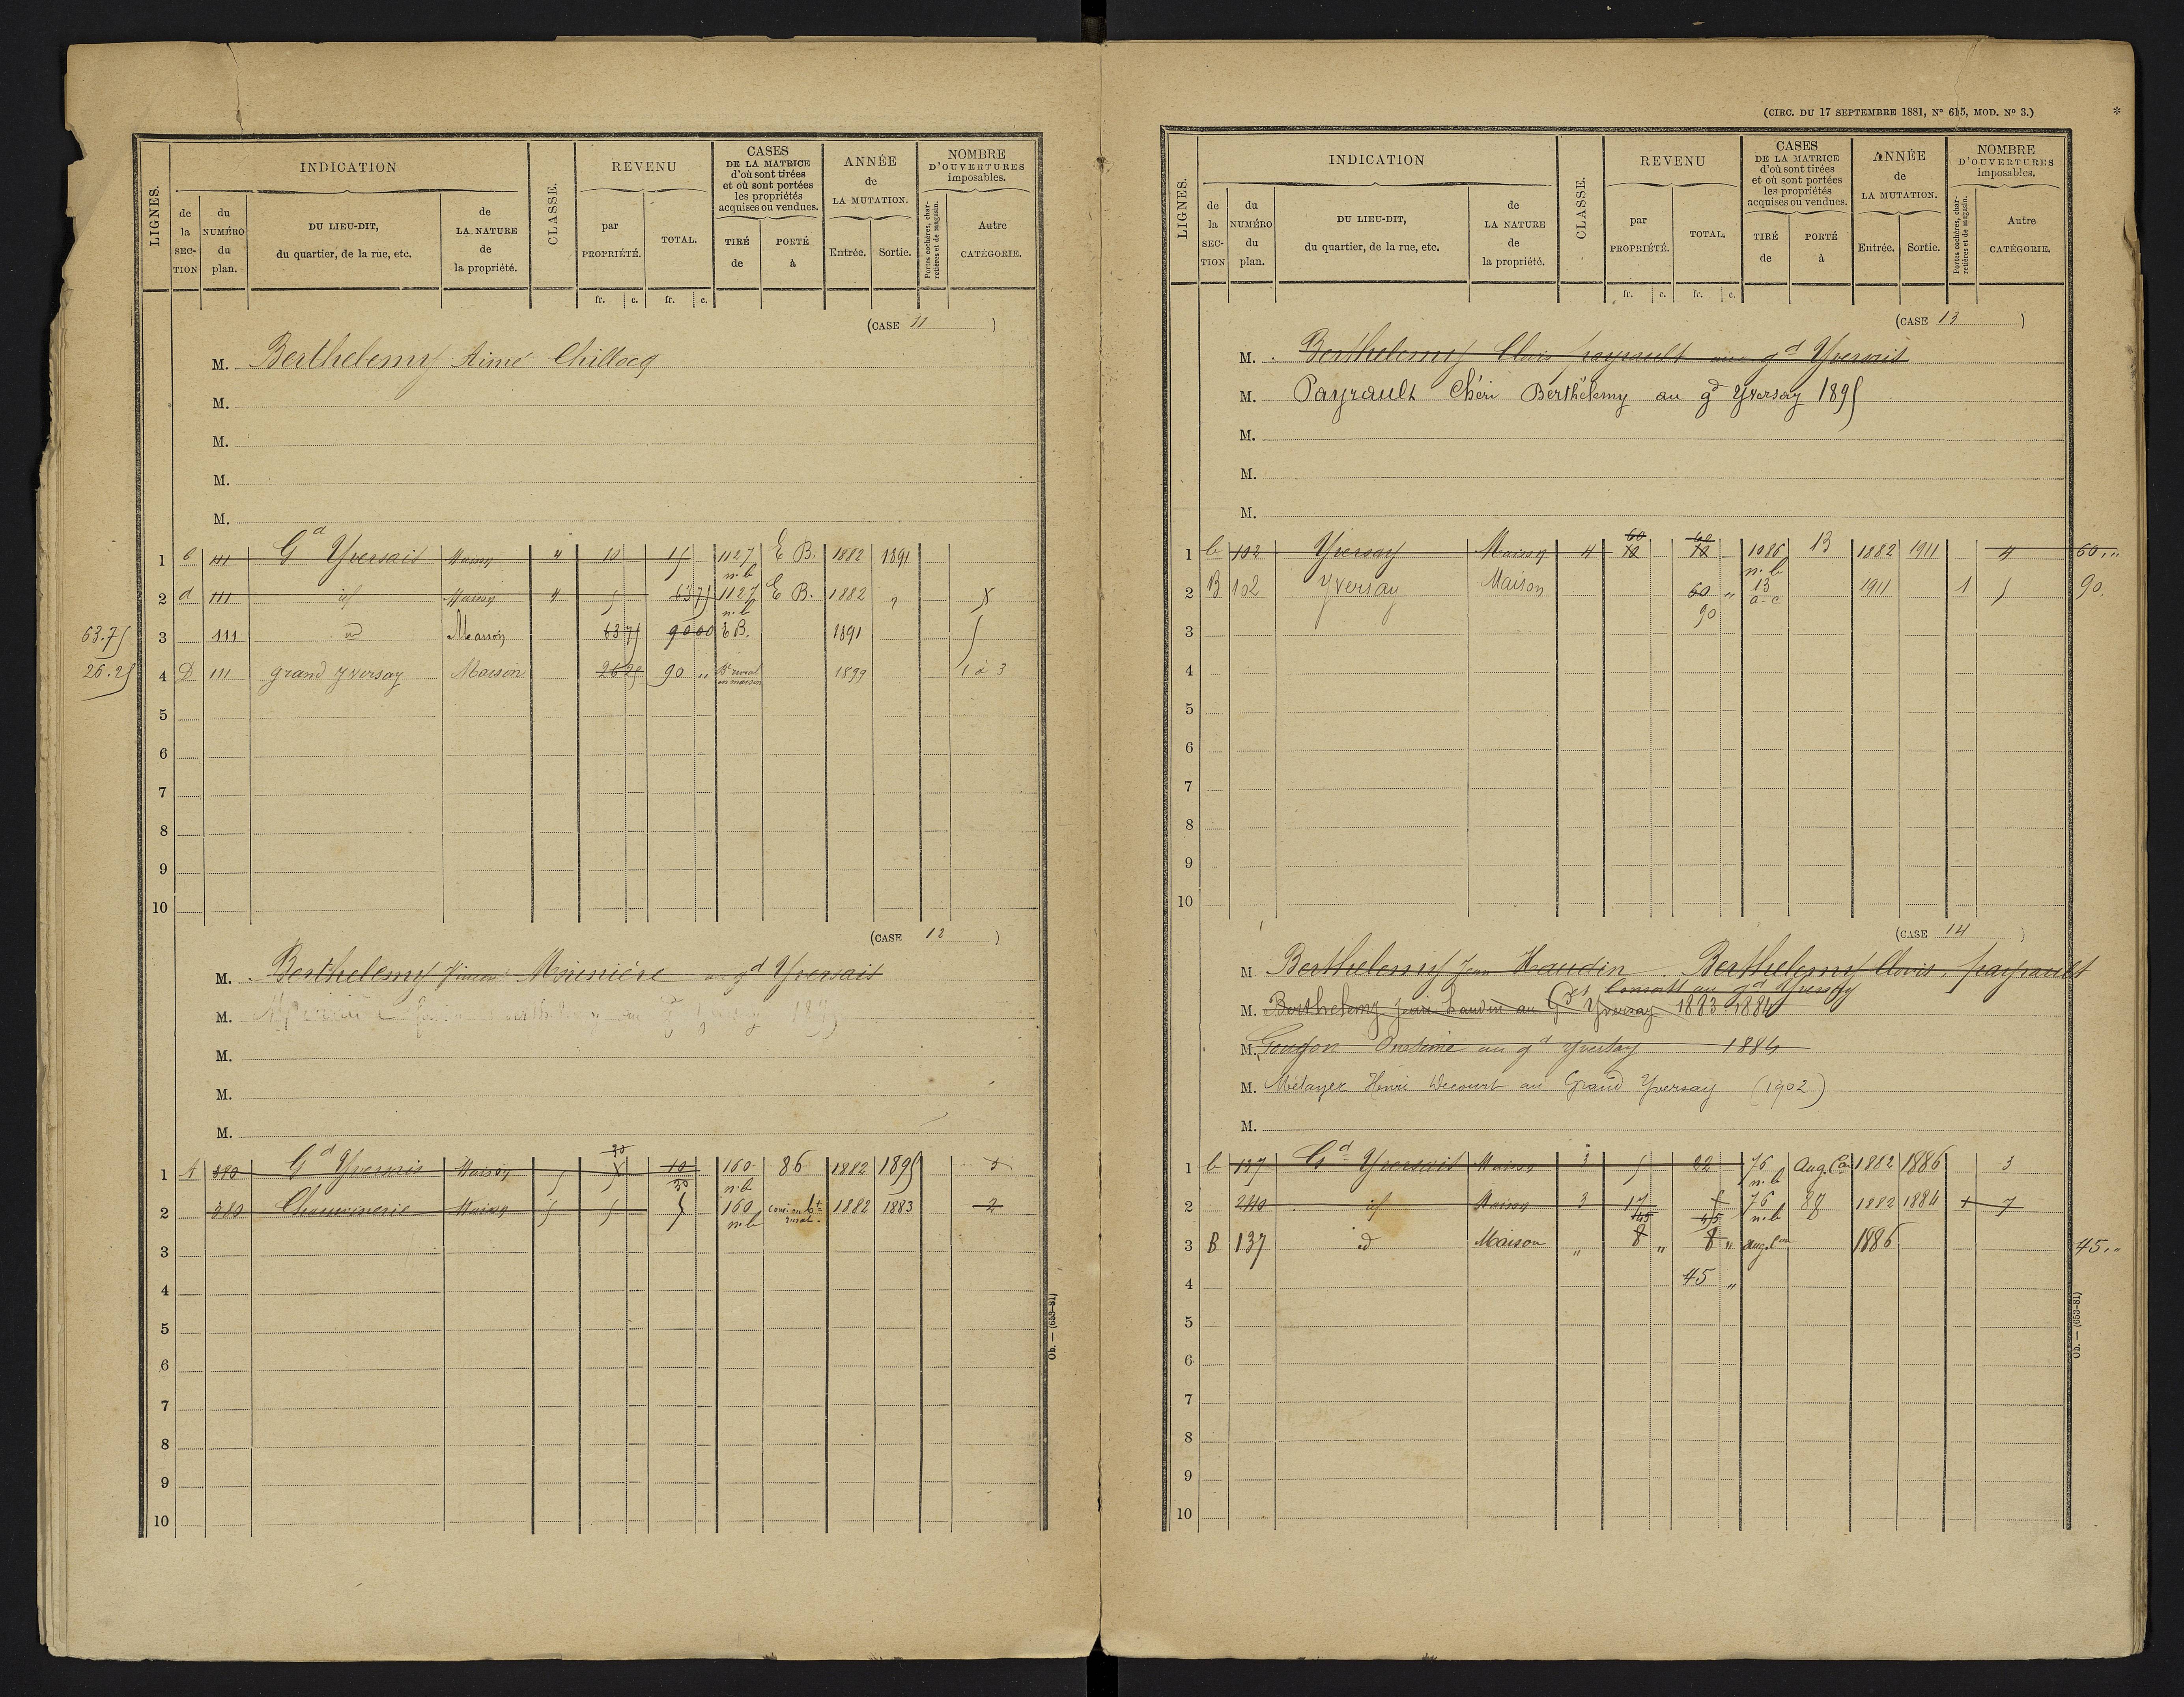 LIGNES.
INDICATION
de la SECTION
du NUMÉRO du plan.
DU LIEU-DIT, du quartier, de la rue, etc.
de LA NATURE de la propriété.
CLASSE.
REVENU
par PROPRIÉTÉ.
TOTAL.
fr. c. fr. c.
CASES DE LA MATRICE d'où sont tirées et où sont portées les propriétés acquises ou vendues.
TIRÉ de
PORTÉ à
ANNÉE de LA MUTATION.
Entrée. Sortie.
NOMBRE D'OUVERTURES imposables.
Portes cochères, charretières et de magasin.
Autre CATÉGORIE.
(CASE 11)
M. Berthelemy Aimé Chillocq
M.
M.
M.
M.
1 111 Gd Yversait Maison 4 10 15 1127 n.b E B. 1882 1891
2 d 111 id Maison 4 5 63 75 1127 n.b E B. 1882
63.75 3 111 id Maison 63 75 90 00 E B. 1891 5
26.25 4 D 111 grand Yversay Maison 26 25 90 " Bt rural en maison 1899 1 à 3
5
6
7
8
9
10
(CASE 12)
M. Berthelemy Mounière au gd Yversait
M.
M.
M.
M.
1 A 380 Gd Yversais Maison 5 30 10 30 160 n.b 86 1882 1895 3
2 380 Maison 5 5 5 160 n.b conv. en bt rural. 1882 1883 2
3
4
5
6
7
8
9
10
Ob. — (653-81)
(CIRC. DU 17 SEPTEMBRE 1881, N° 615, MOD. N° 3.) *
LIGNES.
INDICATION
de la SECTION
du NUMÉRO du plan.
DU LIEU-DIT, du quartier, de la rue, etc.
de LA NATURE de la propriété.
CLASSE.
REVENU
par PROPRIÉTÉ.
TOTAL.
fr. c. fr. c.
CASES DE LA MATRICE d'où sont tirées et où sont portées les propriétés acquises ou vendues.
TIRÉ de
PORTÉ à
ANNÉE de LA MUTATION.
Entrée. Sortie.
NOMBRE D'OUVERTURES imposables.
Portes cochères, charretières et de magasin.
Autre CATÉGORIE.
(CASE 13)
M. Berthelemy Clovis payrault au gd Yversait
M. Payrault Chéri Berthélemy au gd Yversay 1895
M.
M.
M.
1 b 102 Yversay Maison 4 60 60 1086 n.b 13 1882 1911 4 60 "
2 B 102 Yversay Maison 60 " 90 13 a-c 1911 1 5 90.
3
4
5
6
7
8
9
10
(CASE 14)
M. Berthelemy Jean Haudin. Berthelemy Clovis, payrault
Consorts au gd Yversay
M. Berthelemy Jean haudin au Gd Yversay 1883 1884
M. Gougon Onésime au gd Yversay 1884
M. Métayer Henri Decourt au Grand Yversay (1902)
M.
1 b 137 Gd Yversait Maison 3 5 22 76 n.b Aug. Con 1882 1886 3
2 240 id Maison 3 17 45 45 76 n.b 88 1882 1884 1 7
3 B 137 id Maison " 8 " 8 " aug. con 1886 45 "
4 45 "
5
6
7
8
9
10
Ob. — (653-81)